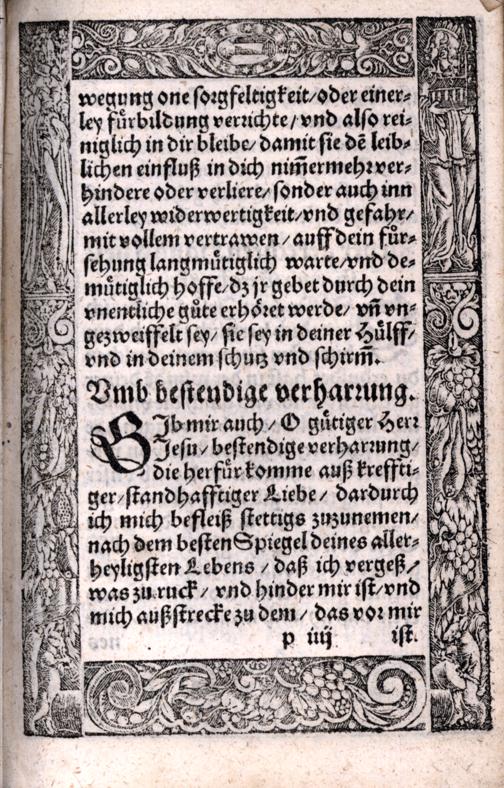 wegung one sorgfeltigkeit/oder einer⸗
ley fürbildung verrichte/vnd also rei⸗
niglich in dir bleibe/damit sie dē leib⸗
lichen einfluß in dich nim̄ermehr ver⸗
hindere oder verliere/sonder auch inn
allerley widerwertigkeit/vnd gefahr/
mit vollem vertrawen/auff dein für⸗
sehung langmütiglich warte/vnd de⸗
mütiglich hoffe/dz jr gebet durch dein
vnentliche güte erhöret werde/vn̄ vn⸗
gezweiffelt sey/sie sey in deiner Hülff/
vnd in deinem schutz vnd schirm̄.
Vmb bestendige verharrung.
GIb mir auch/O gütiger Herr
Jesu/bestendige verharrung/
die herfür komme auß kreffti⸗
ger/standhafftiger Liebe/dardurch
ich mich befleiß stettigs zuzunemen/
nach dem besten Spiegel deines aller⸗
heyligsten Lebens/daß ich vergeß/
was zu ruck/vnd hinder mir ist/vnd
mich außstrecke zu dem/das vor mir
p iiij ist.